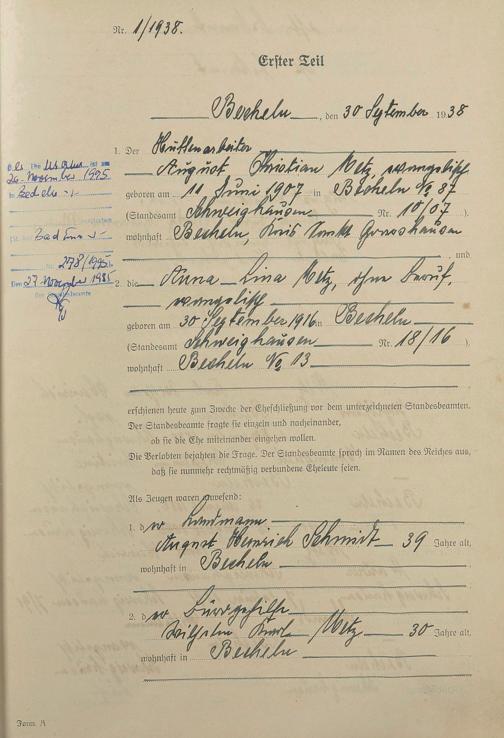 Nr. 1/1938.
Erster Teil
Becheln, den 30 September 1938
1. Der Hüttenarbeiter
August Christian Metz, evangelisch
geboren am 11 Juni 1907 in Becheln No 87
(Standesamt Schweighausen Nr. 10/07).
wohnhaft Becheln, Kreis Sankt Goarshausen
, und
2. die Anna Lina Metz, ohne Beruf,
evangelisch
geboren am 30 September 1916 in Becheln
(Standesamt Schweighausen Nr. 18/16).
wohnhaft Becheln No 13
erschienen heute zum Zwecke der Eheschließung vor dem unterzeichneten Standesbeamten.
Der Standesbeamte fragte sie einzeln und nacheinander,
ob sie die Ehe miteinander eingehen wollen.
Die Verlobten bejahten die Frage. Der Standesbeamte sprach im Namen des Reiches aus,
daß sie nunmehr rechtmäßig verbundene Eheleute seien.
Als Zeugen waren anwesend:
1. der Landmann
August Heinrich Schmidt 39 Jahre alt,
wohnhaft in Becheln
2. der Bürogehilfe
Wilhelm Karl Metz 30 Jahre alt,
wohnhaft in Becheln
26. November 1995
in Becheln
Bad Ems
Nr. 278/1995
Den 27. November 1995
Der Standesbeamte
Form. A